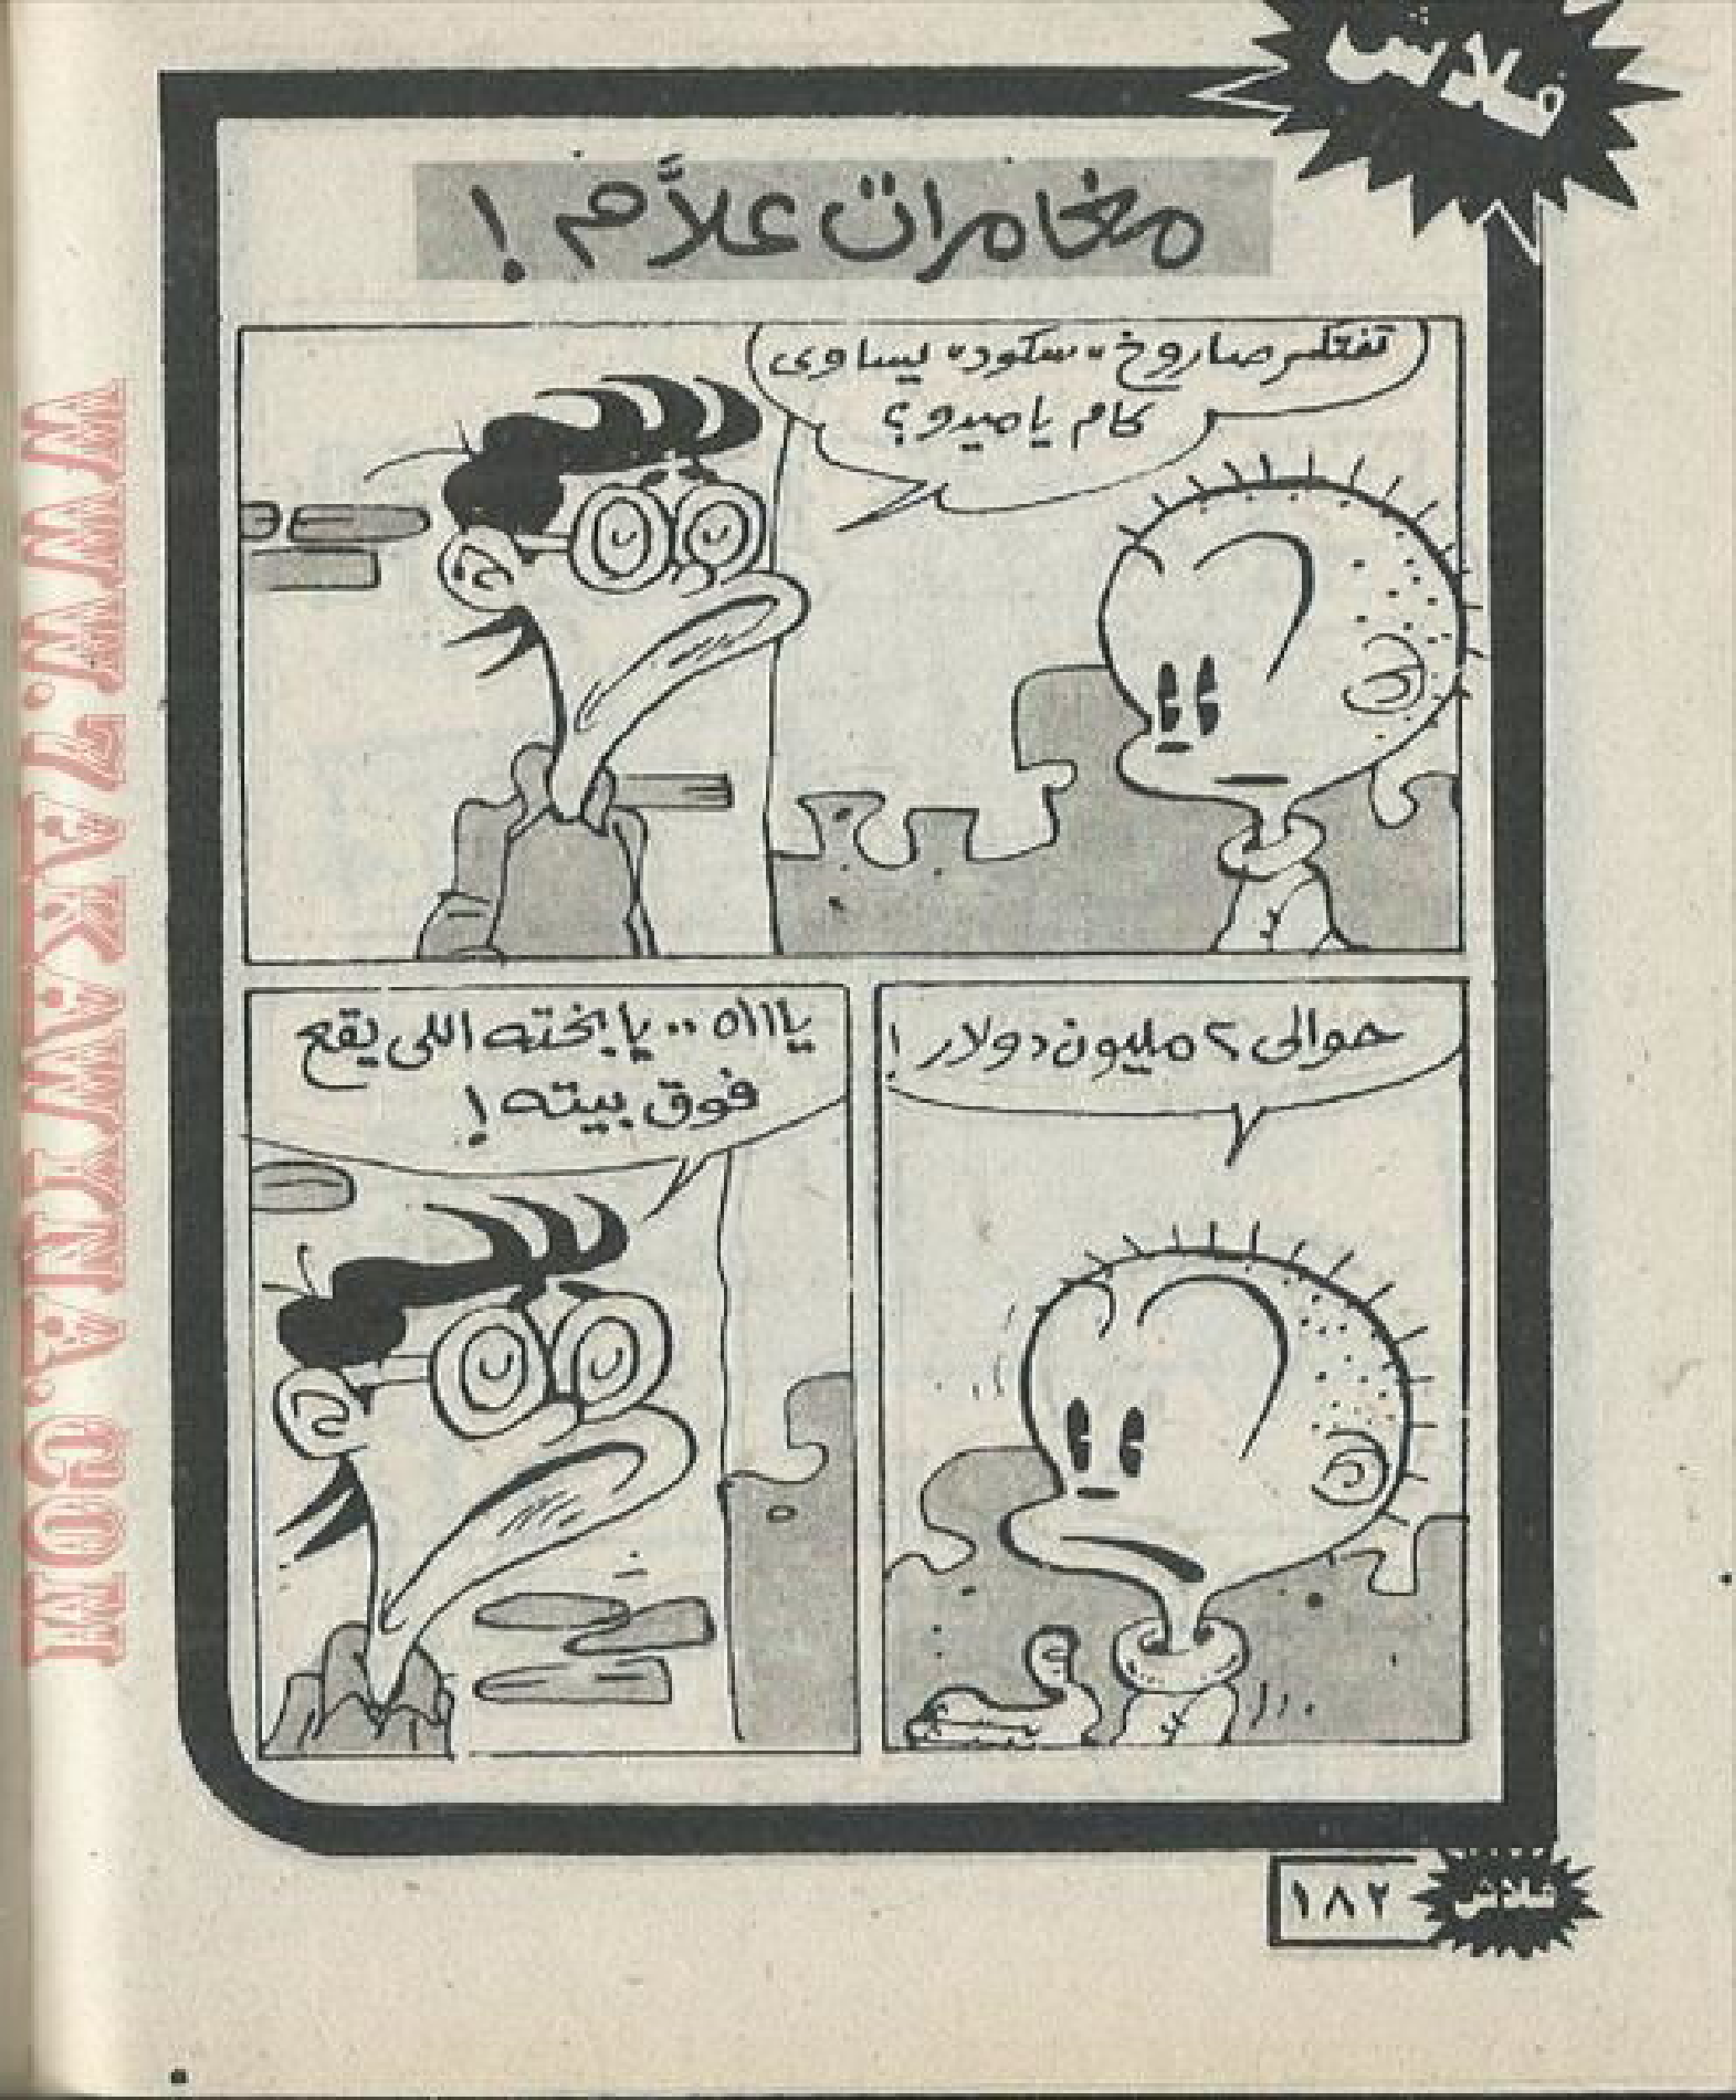 فلاش
مغامرات علاَّم !
تفتكر صاروخ "سكود" يساوى
كام يا ميدو؟
حوالى ٢ مليون دولار !
يااااه .. يا بخته اللى يقع
فوق بيته !
فلاش
١٨٢
WWW.7AKAWINA.COM